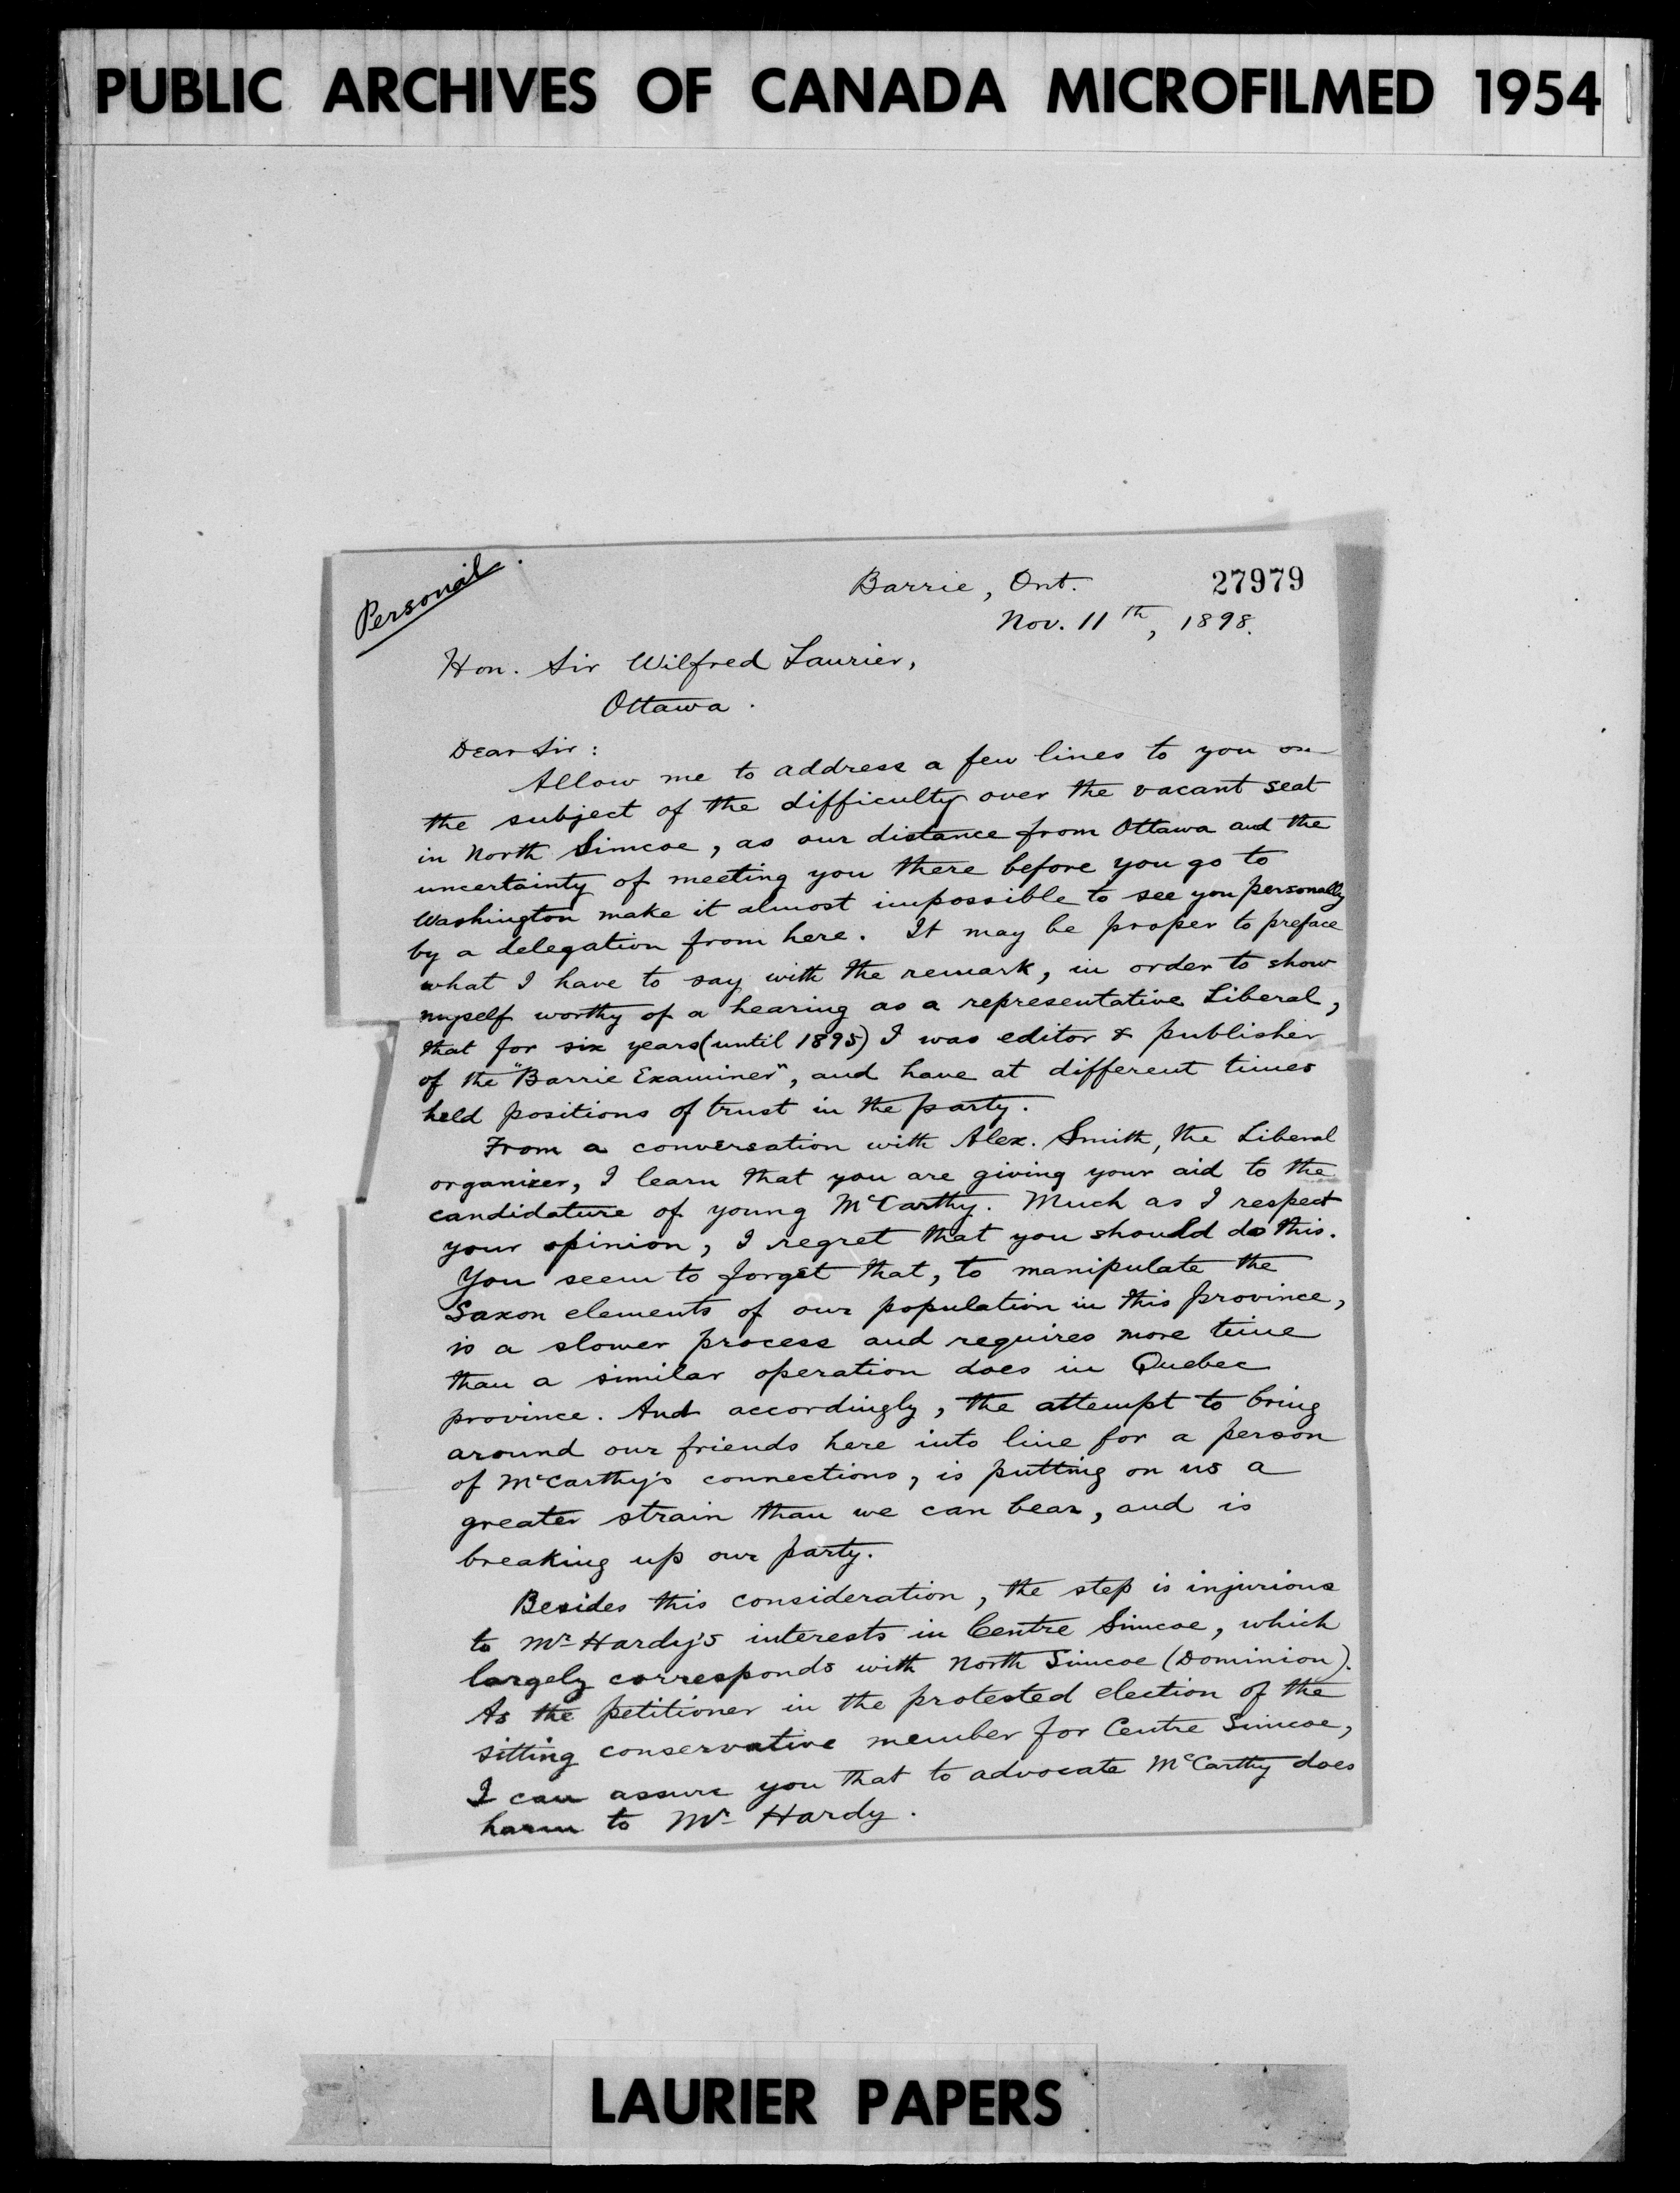 PUBLIC ARCHIVES OF CANADA MICROFILMED 1954
Personal.
Barrie, Ont.
27979
Nov. 11th, 1898.
Hon. Sir Wilfred Laurier,
Ottawa.
Dear Sir:
Allow me to address a few lines to you on
the subject of the difficulty over the vacant seat
in North Simcoe, as our distance from Ottawa and the
uncertainty of meeting you there before you go to
Washington make it almost impossible to see you personally
by a delegation from here. It may be proper to preface
what I have to say with the remark, in order to show
myself worthy of a hearing as a representative Liberal,
that for six years (until 1895) I was editor & publisher
of the "Barrie Examiner", and have at different times
held positions of trust in the party.
From a conversation with Alex. Smith, the Liberal
organizer, I learn that you are giving your aid to the
candidature of young McCarthy. Much as I respect
your opinion, I regret that you should do this.
You seem to forget that, to manipulate the
Saxon elements of our population in this province,
is a slower process and requires more time
than a similar operation does in Quebec
province. And accordingly, the attempt to bring
around our friends here into line for a person
of McCarthy's connections, is putting on us a
greater strain than we can bear, and is
breaking up our party.
Besides this consideration, the step is injurious
to Mr Hardy's interests in Centre Simcoe, which
largely corresponds with North Simcoe (Dominion).
As the petitioner in the protested election of the
sitting conservative member for Centre Simcoe,
I can assure you that to advocate McCarthy does
harm to Mr Hardy.
LAURIER PAPERS